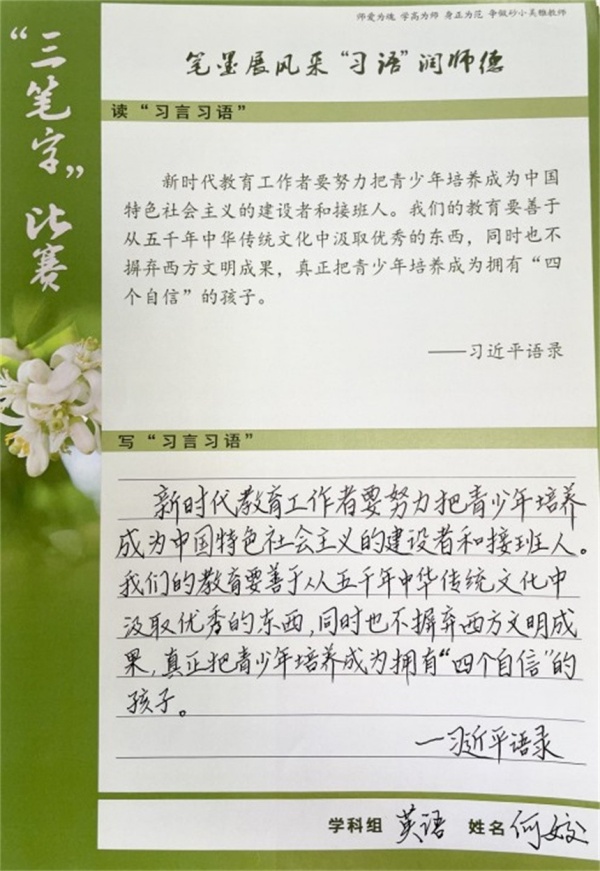 师爱为魂 学高为师 身正为范 争做砂小美雅教师
“三笔字”比赛
笔墨展风采“习语”润师德
读“习言习语”
新时代教育工作者要努力把青少年培养成为中国
特色社会主义的建设者和接班人。我们的教育要善于
从五千年中华传统文化中汲取优秀的东西，同时也不
摒弃西方文明成果，真正把青少年培养成为拥有“四
个自信”的孩子。
——习近平语录
写“习言习语”
新时代教育工作者要努力把青少年培养
成为中国特色社会主义的建设者和接班人。
我们的教育要善于从五千年中华传统文化中
汲取优秀的东西，同时也不摒弃西方文明成
果，真正把青少年培养成为拥有“四个自信”的
孩子。
—习近平语录
学科组 英语 姓名 何姣